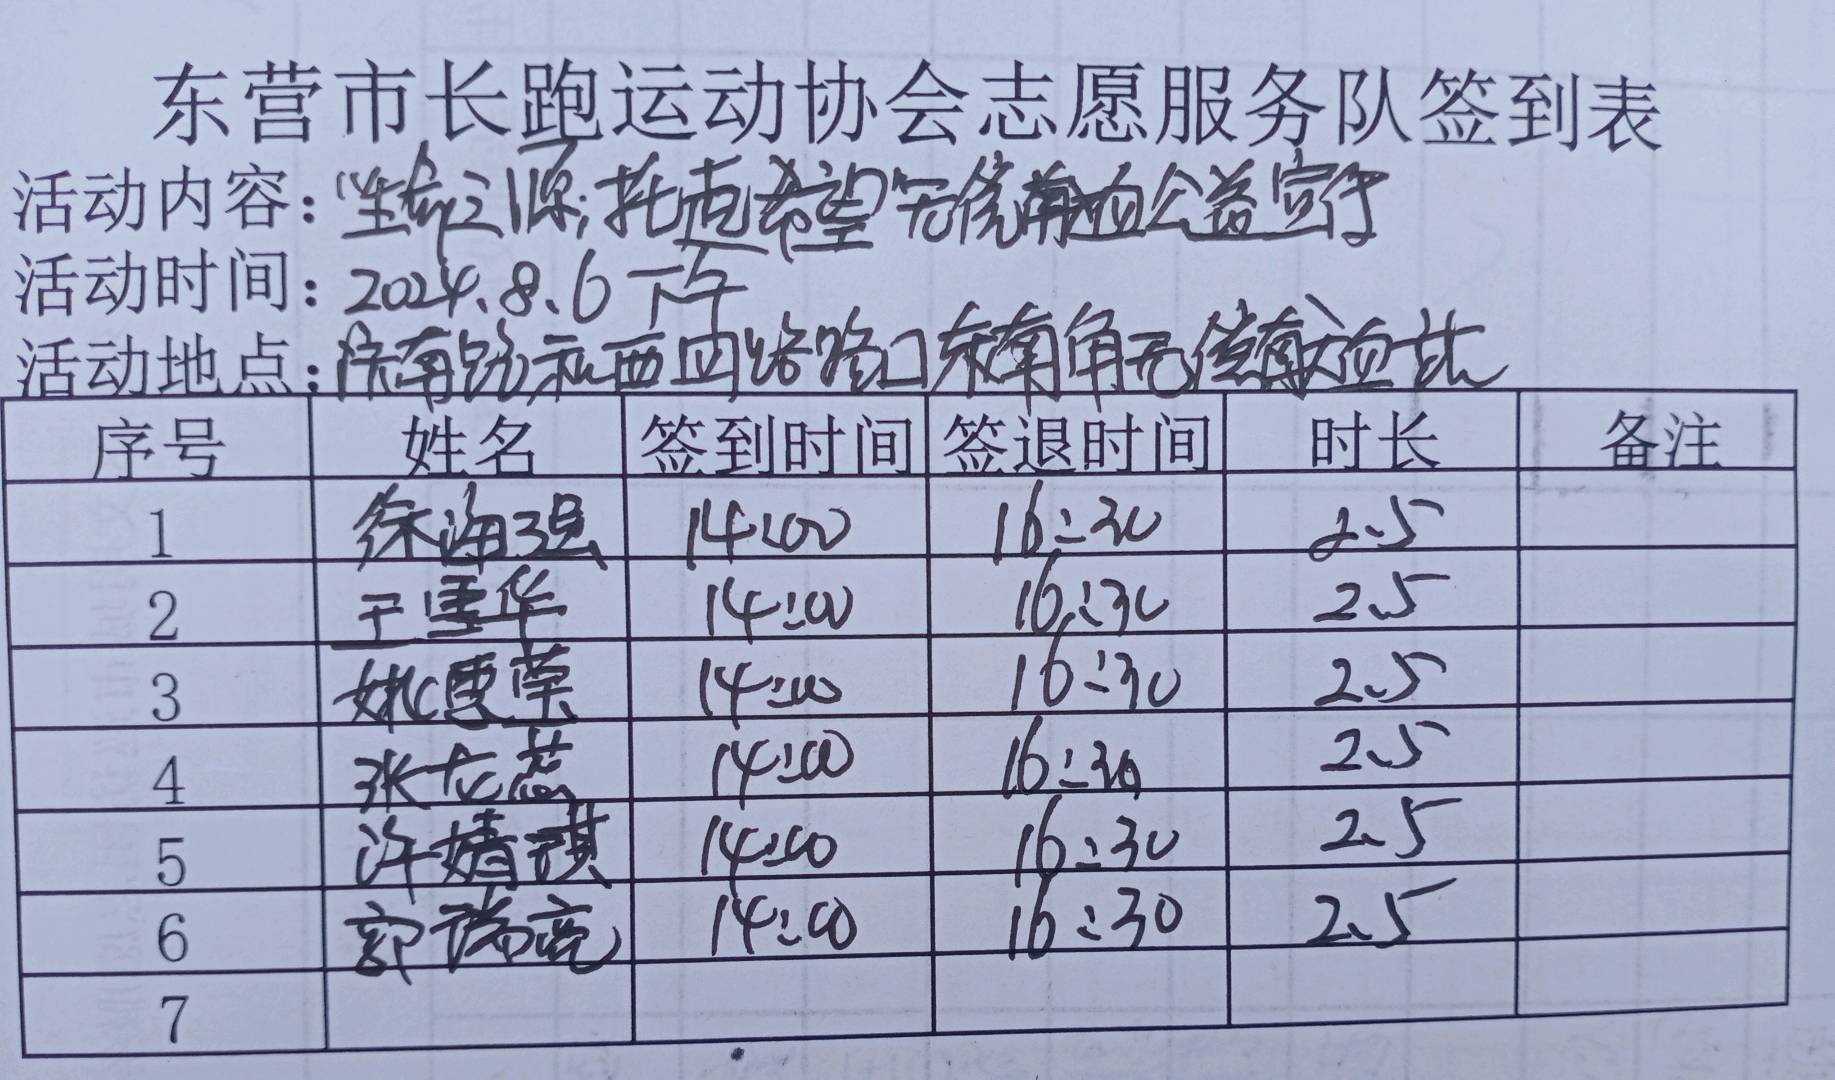 东营市长跑运动协会志愿服务队签到表
活动内容：“生命之源，托起希望”无偿献血公益宣传
活动时间：2024.8.6 下午
活动地点：济南路和西四路路口东南角无偿献血站
序号 姓名 签到时间 签退时间 时长 备注
1 徐海强 14:00 16:30 2.5
2 王雪华 14:00 16:30 2.5
3 姚惠荣 14:00 16:30 2.5
4 张龙蕊 14:00 16:30 2.5
5 许婧祺 14:00 16:30 2.5
6 郭瑞亮 14:00 16:30 2.5
7